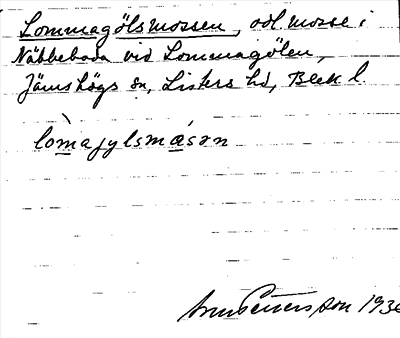 Lommagölsmossen, odl. mosse i
Näbbeboda vid Lommagölen,
Jämshögs sn, Listers hd, Blek l.
lòmajylsmásən
Pettersson 193